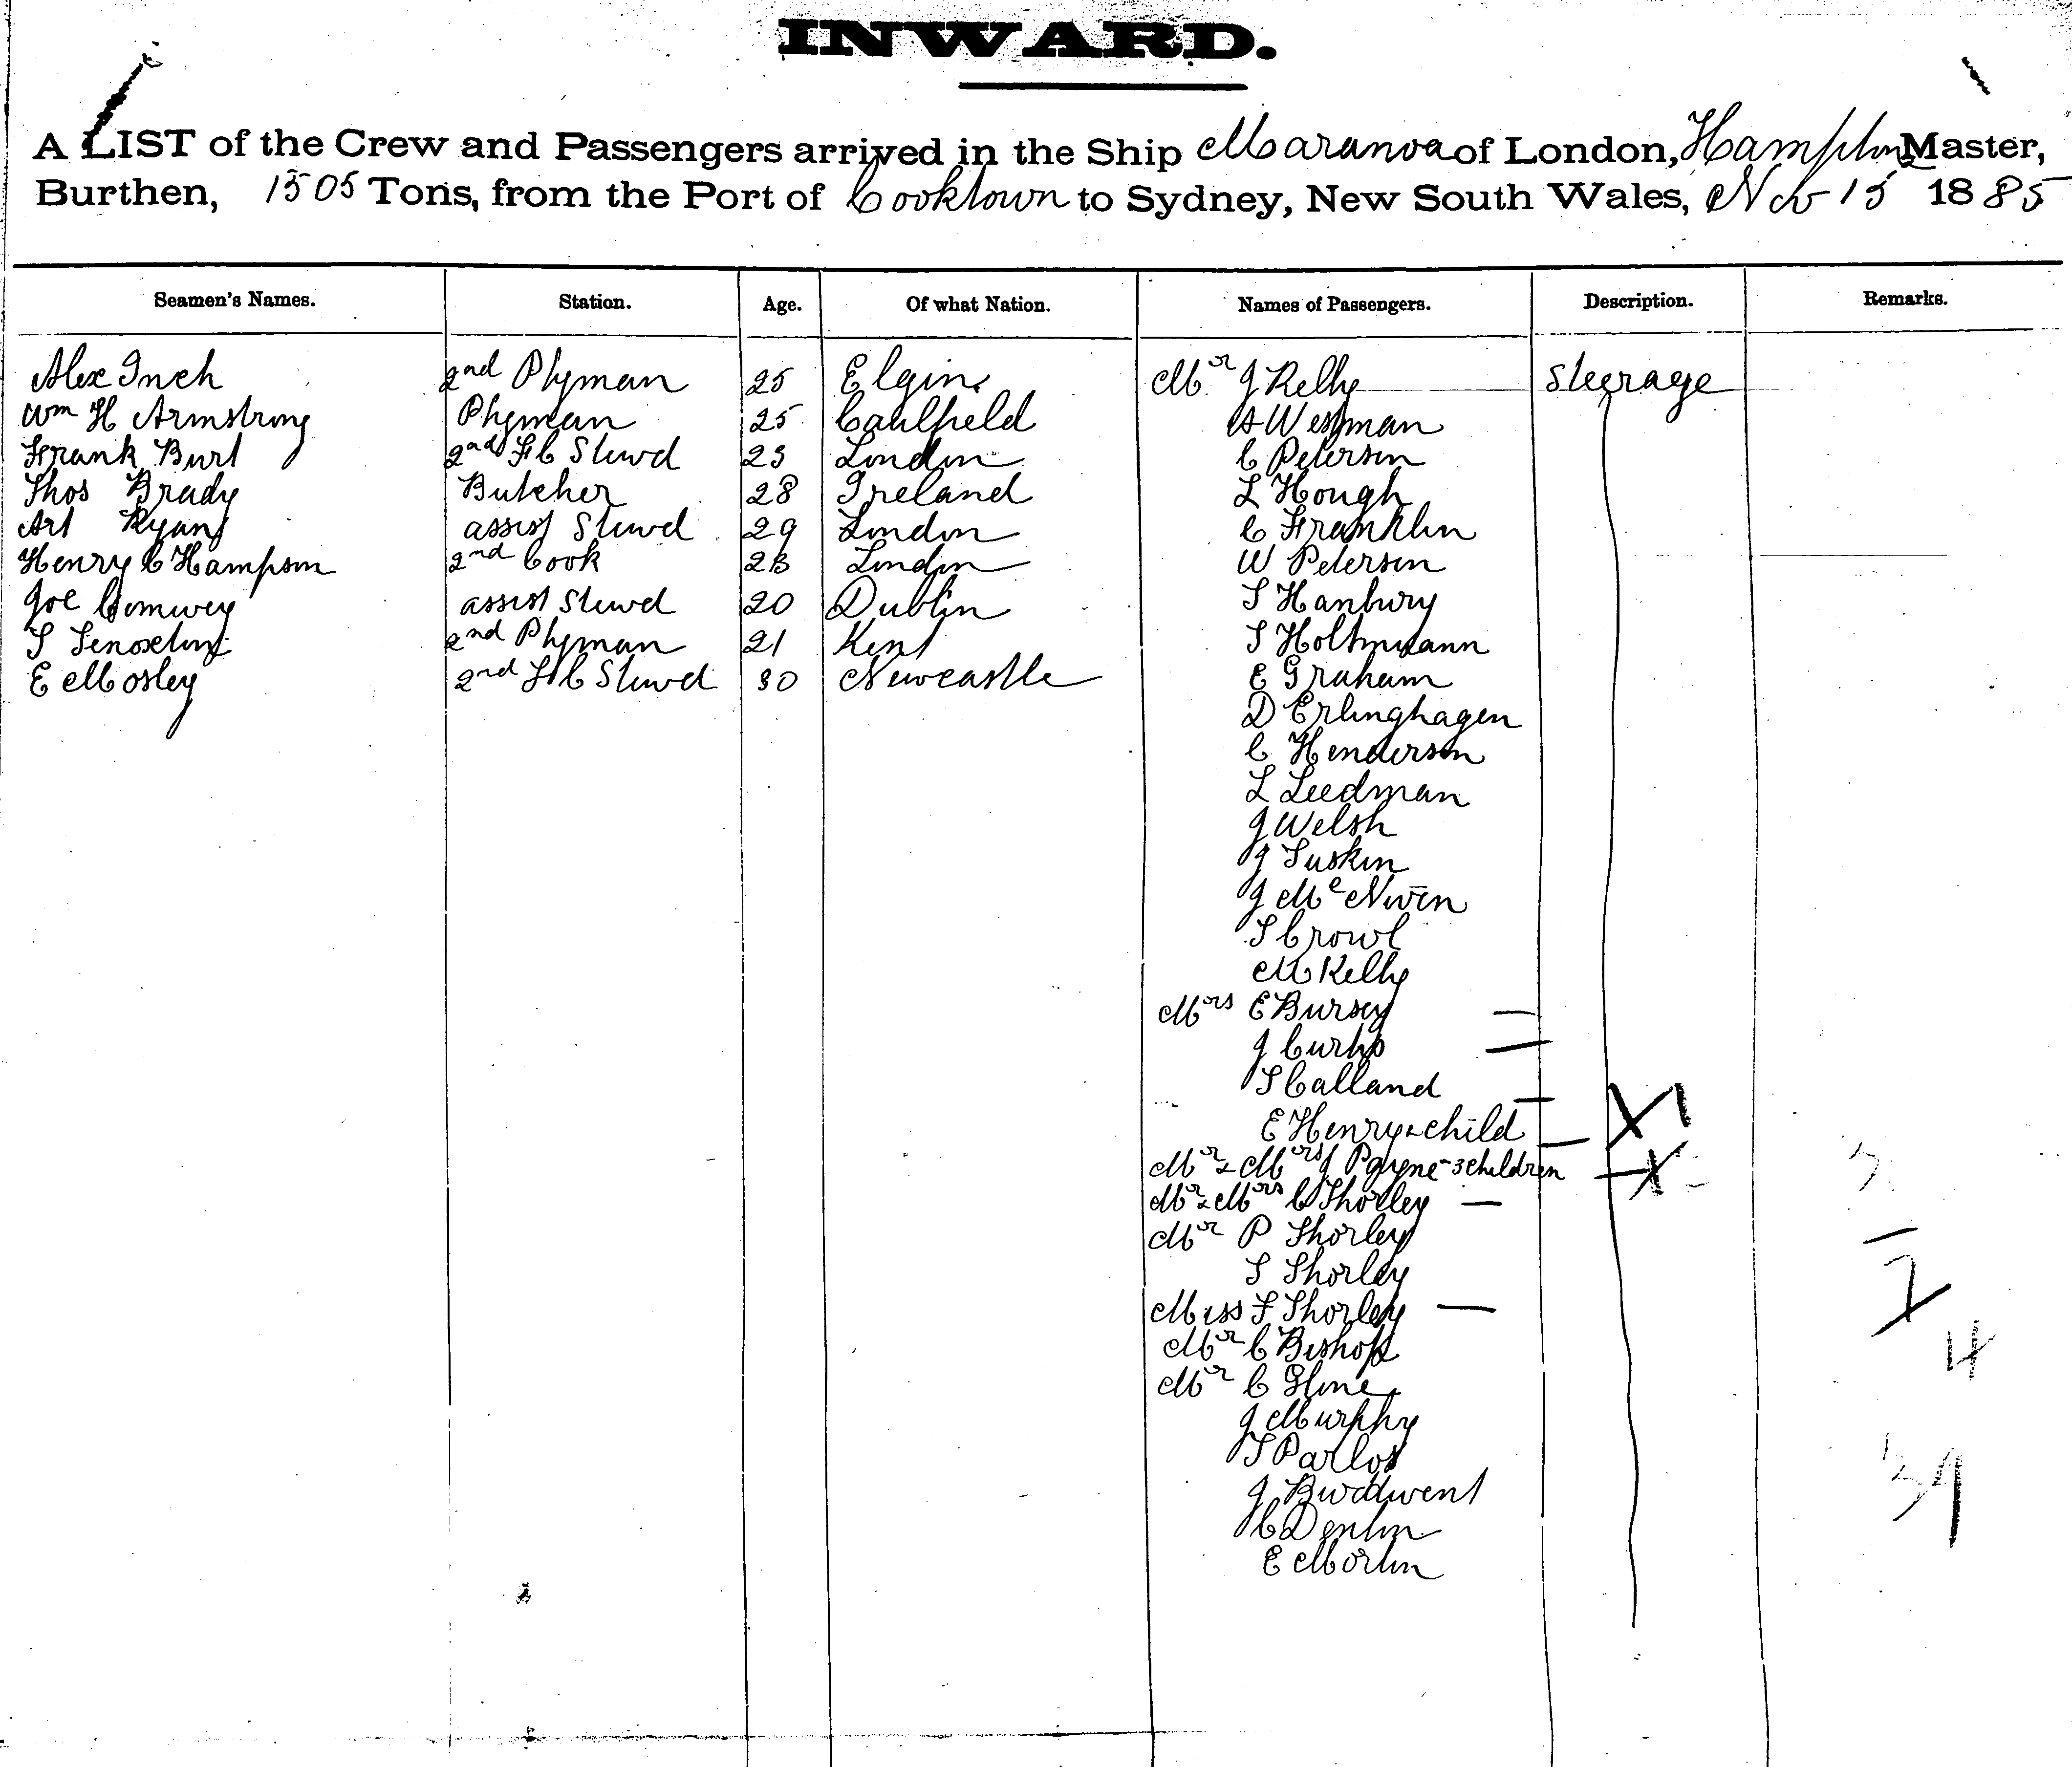 INWARD.
A LIST of the Crew and Passengers arrived in the Ship Maranoa of London, Hampton Master,
Burthen, 1505 Tons, from the Port of Cooktown to Sydney, New South Wales, Nov 15 1885
Seamen's Names. Station. Age. Of what Nation. Names of Passengers. Description. Remarks.
Alex Inch 2nd Phyman 25 Elgin Mr J Kelly steerage
Wm H Armstrong Phyman 25 Caulfield A Wessman
Frank Burt 2nd F C Stewd 23 London C Petersen
Thos Brady Butcher 28 Ireland L Hough
Art Ryan assist Stewd 29 London C Franklin
Henry C Hampson 2nd Cook London W Petersen
Joe assist Stewd 20 Dublin S Hanbury
S 2nd Phyman 21 Kent S Holtmann
E Mosley 2nd F C Stewd 30 Newcastle E Graham
D Erlinghagen
C Henderson
L Leedman
J Welsh
J Suskin
J McNiven
S Crowl
M Kelly
Mrs E Bursey
J Curtis
S Calland
E Henry & child
Mr & Mrs J Payne - 3 children
Mr & Mrs C Thorley
Mr P Thorley
S Thorley
Miss F Thorley
Mr C Bishop
Mr C
J Murphy
T Parlos
J
C Denton
E Morton
2
4
34